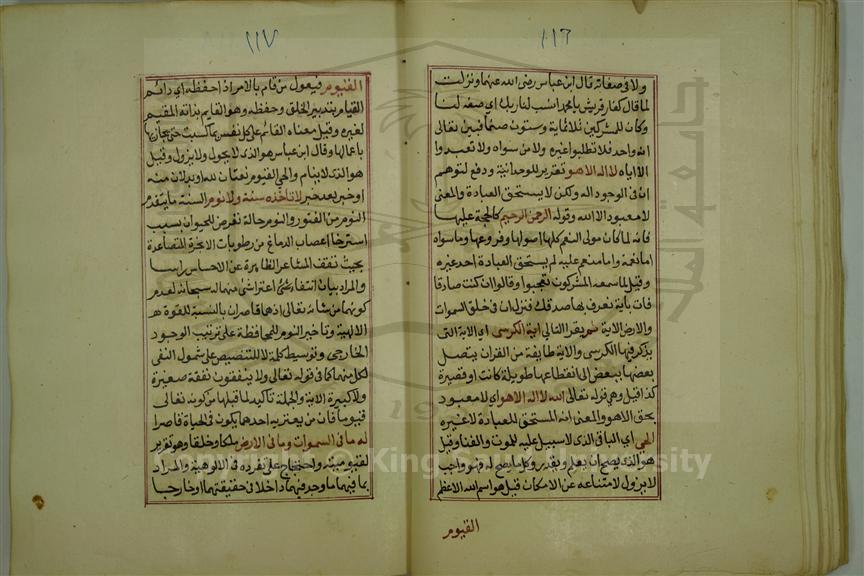 ١١٦
ولا في صفاته قال ابن عباس رضى الله عنهما ونزلت
لما قال كفار قريش يا محمد انسب لنا ربك اي صفه لنا
وكان للمشركين ثلاثماية وستون صنما فبين تعالى
انه واحد فلا تطلبوا غيره ولا من سواه ولا تعبدوا
الا اياه لا اله الا هو تقرير للوحدانية ودفع لتوهم
ان في الوجود اله ولكن لا يستحق العبادة والمعنى
لا معبود الا الله وقوله الرحمن الرحيم كالحجة عليها
فانه لما كان مولى النعم كلها اصولها وفروعها وما سواه
اما نعمة واما منعم عليه لم يستحق العبادة احد غيره
وقيل لما سمعه المشركون تعجبوا وقالوا ان كنت صادقا
فات باية نعرف بها صدقك فنزل ان في خلق السموات
والارض الاية ثم يقرا التالي اية الكرسى اي الاية التى
يذكر فيها الكرسى والاية طايفة من القران يتصل
بعضها ببعض الى انقطاعها طويلة كانت او قصيرة
كذا قيل وهي قوله تعالى الله لا اله الا هو اي لا معبود
بحق الا هو والمعنى انه المستحق للعبادة لا غيره
الحي اي الباقي الذى لا سبيل عليه للموت والفنا وقيل
هو الذى يصح ان يعلم ويقدر وكل ما يصح له فهو واجب
لا يزول لامتناعه عن الامكان قيل هو اسم الله الاعظم
القيوم
١١٧
القيوم فيعول من قام بالامر اذا حفظه اي دائم
القيام بتدبير الخلق وحفظه وهو القايم بذاته المقيم
لغيره وقيل معناه القائم على كل نفس بما كسبت حتى يجازيها
باعمالها وقال ابن عباس هو الذى لا يحول ولا يزول وقيل
هو الذى لا ينام والحي القيوم نعتان لله او بدلان منه
او خبر بعد خبر لا تاخذه سنة ولا نوم السنة ما يتقدم
النوم من الفتور والنوم حالة تعرض للحيوان بسبب
استرخا اعصاب الدماغ من رطوبات الابخرة المتصاعدة
بحيث تقف المشاعر الظاهرة عن الاحساس راسا
والمراد بيان انتفا اعترا شئ منهما له سبحانه لعدم
كونهما من شانه تعالى اذهما قاصران بالنسبة للقوة
الالهية وتاخير النوم للمحافظة على ترتيب الوجود
الخارجي وتوسيط كلمة لا للتنصيص على شمول النفى
لكل منهما كما في قوله تعالى ولا ينفقون نفقة صغيرة
ولا كبيرة الاية والجملة تاكيد لما قبلها من كونه تعالى
قيوما فان من يعتريه احدهما يكون في الحياة قاصرا
له ما في السموات وما في الارض ملكا وخلقا وهو تقرير
لقيوميته واحتجاج على تفرده في الالوهية والمراد
بما فيهما ما وجد فيهما داخلا في حقيقتهما او خارجا
جامعة الملك
1957
Copyright © King Saud University